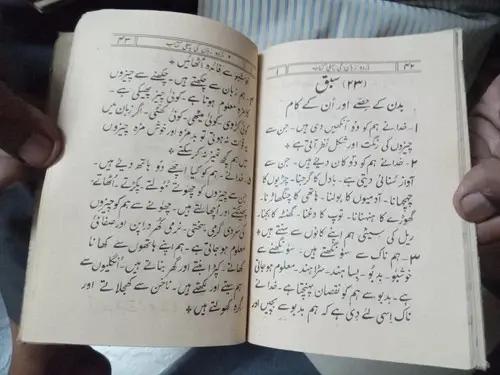 ۴۲
اردو زبان کی پہلی کتاب
۱
سبق (۲۳)
بدن کے حصّے اور اُن کے کام
۱۔ خدا نے ہم کو دو آنکھیں دی ہیں۔ جن سے
چیزوں کی رنگت اور شکل نظر آتی ہے۔
۲۔ خدا نے ہم کو دو کان دیے ہیں۔ جن سے
آواز سُنائی دیتی ہے۔ بادل کا گرجنا۔ چڑیوں کا
چہچہانا۔ آدمیوں کا بولنا۔ ہاتھی کا چنگھاڑنا۔
گھوڑے کا ہنہنانا۔ توپ کا دغنا۔ گھنٹہ کا بجنا۔
ریل کی سیٹی ہم اپنے کانوں سے سنتے ہیں۔
۳۔ ہم ناک سے سونگھتے ہیں۔ سونگھنے سے
خوشبو۔ بدبو۔ بساہند۔ سڑاہند۔ معلوم ہو جاتی
ہے۔ بدبو سے ہم کو نقصان پہنچتا ہے۔
ناک اِسی لئے دی ہے کہ ہم بدبو سے بچیں اور
۴۳
اردو زبان کی پہلی کتاب
خوشبو سے فائدہ اُٹھائیں۔
۴۔ ہم زبان سے چکھتے ہیں۔ چکھنے سے چیزوں
کا مزہ معلوم ہوتا ہے۔ کوئی چیز پھیکی ہے۔
کوئی کڑوی۔ کوئی میٹھی۔ کوئی کھٹّی۔ اگر زبان میں
ذائقہ نہ ہوتی تو بدمزہ اور خوش مزہ چیزوں
میں ہم کچھ تمیز نہ کر سکتے۔
۵۔ خدا نے ہم کو کیا اچھے دو ہاتھ دیے ہیں۔
جن سے چیزوں کو چھوتے ٹٹولتے۔ پکڑتے۔ اُٹھاتے
اور اُچھالتے ہیں۔ چھونے سے ہم کو چیزوں
کی گرمی سردی۔ سختی۔ نرمی۔ کُھردراپن اور صفائی
معلوم ہو جاتی ہے۔ ہم اپنے ہاتھوں سے کھانا
کھاتے۔ کپڑا بنتے اور گھر بناتے ہیں۔ اُنگلیوں سے
ہم بنتے اور لکھتے ہیں۔ ناخن سے کھجلاتے اور
گرہ کھولتے ہیں۔